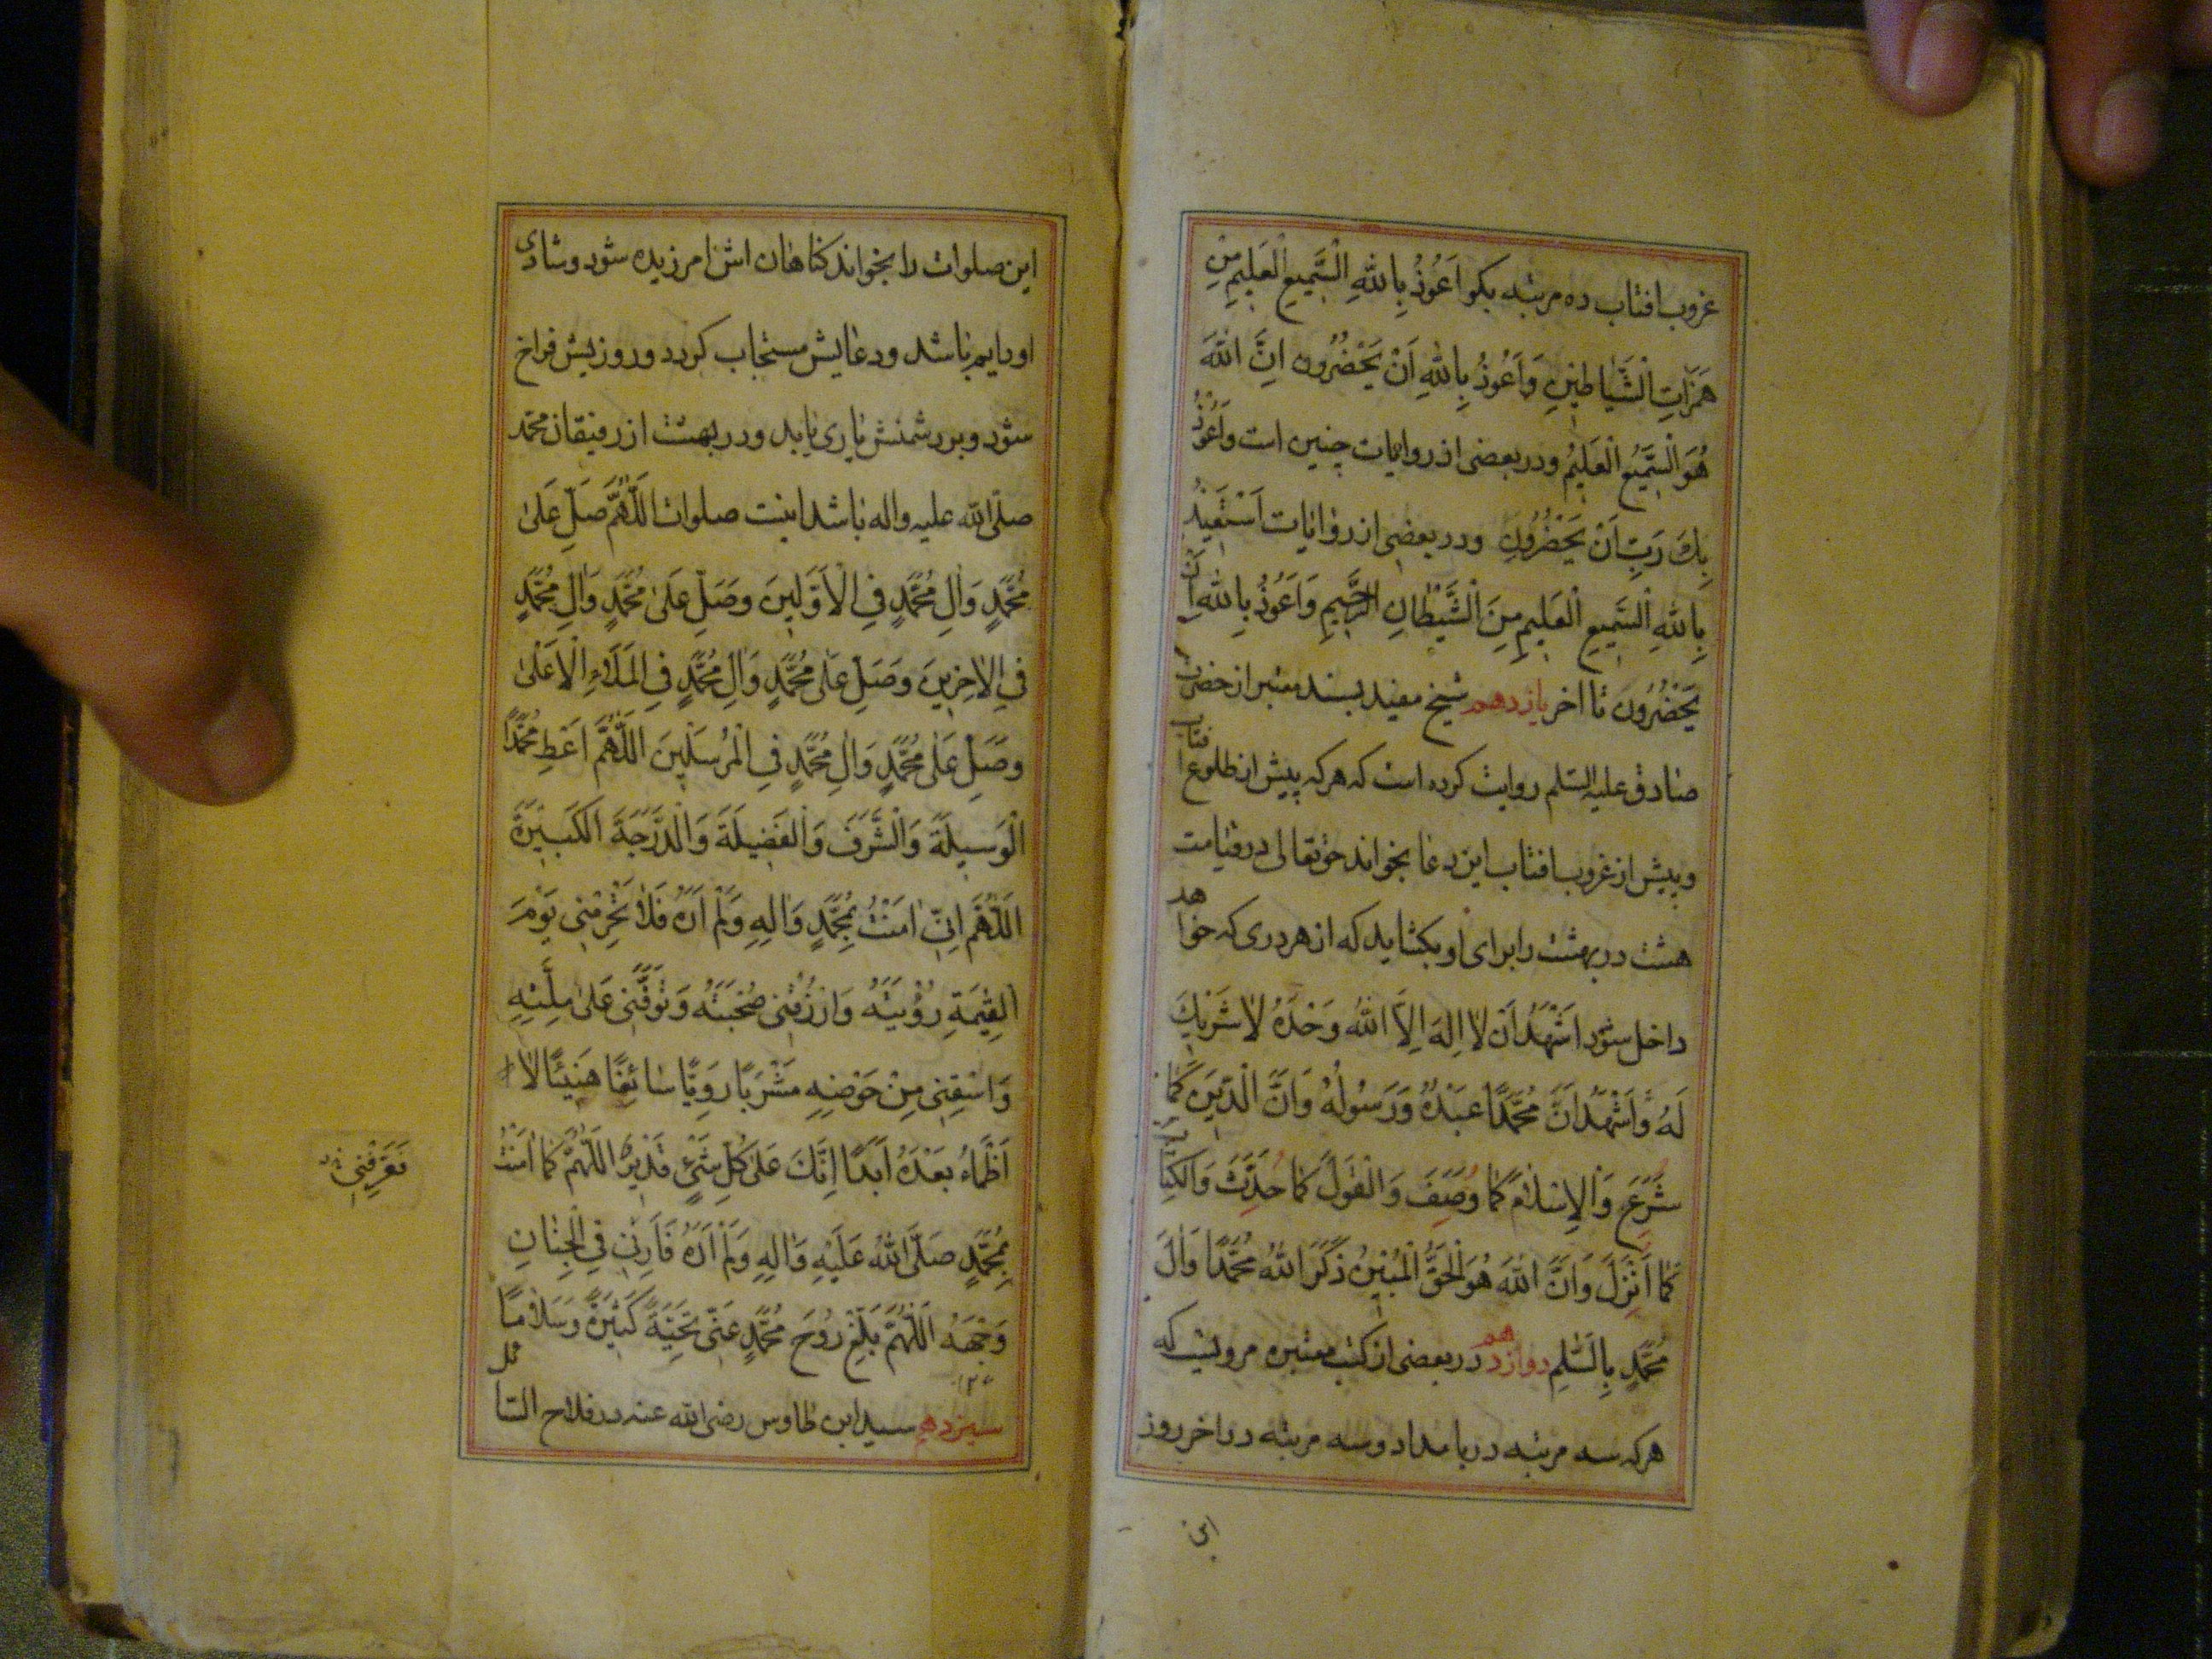 غروب افتاب ده مرتبه بكو اَعُوذُ بِاللهِ السَّمیعِ الْعَلیمِ مِنْ
هَمَزاتِ الْشَّیاطینِ وَاَعُوذُ بِاللهِ اَنْ یَحْضُرُونِ اِنَّ اللهَ
هُوَ الْسَّمیعُ الْعَلیمُ ودر بعضی از روایات چنین است وَاَعُوذُ
بِكَ رَبِّ اَنْ یَحْضُرُونِ ودر بعضی از روایات اَسْتَعیذُ
بِاللهِ الْسَّمیعِ الْعَلیمِ مِنَ الْشَّیْطانِ الرَّجیمِ وَاَعُوذُ بِاللهِ اَنْ
یَحْضُرُونِ تا اخر یازدهم شیخ مفید بسند معتبر از حضرت
صادق علیه السّلم روایت كرده است كه هر كه پیش از طلوع افتاب
وپیش از غروب افتاب این دعا بخواند حقتعالی در قیامت
هشت در بهشت را برای او بكشاید كه از هر دری كه خواهد
داخل شود اَشْهَدُ اَنْ لا اِلهَ اِلاَّ اللهُ وَحْدَهُ لا شَریكَ
لَهُ وَاَشْهَدُ اَنَّ مُحَمَّدًا عَبْدُهُ وَرَسُولُهُ وَاَنَّ الْدّینَ كَما
شُرِعَ وَالْاِسْلامَ كَما وُصِفَ وَالْقَوْلَ كَما حُدِّثَ وَالْكِتابَ
كَما اُنْزِلَ وَاَنَّ اللهَ هُوَ الْحَقُّ الْمُبینُ ذَكَرَ اللهُ مُحَمَّدًا وَالَ
مُحَمَّدٍ بِالسَّلمِ دوازدهم در بعضی از كتب معتبره مرویست كه
هر كه سه مرتبه در بامداد وسه مرتبه در اخر روز
این
این صلوات را بخواند كناهان اش امرزیده شود وشادی
او دایم باشد ودعایش مستجاب كردد وروزیش فراخ
شود وبر دشمنش یاری یابد ودر بهشت از رفیقان محمّد
صلّی الله علیه واله باشد اینست صلوات اَللّهُمَّ صَلِّ عَلی
مُحَمَّدٍ وَالِ مُحَمَّدٍ فِی الْاَوَّلینَ وَصَلِّ عَلی مُحَمَّدٍ وَالِ مُحَمَّدٍ
فِی الاخِرینَ وَصَلِّ عَلی مُحَمَّدٍ وَالِ مُحَمَّدٍ فِی الْمَلَاءِ الْاَعْلی
وَصَلِّ عَلی مُحَمَّدٍ وَالِ مُحَمَّدٍ فِی الْمُرْسَلینَ اَللّهُمَّ اَعْطِ مُحَمَّدًا
الْوَسیلَةَ وَالْشَّرَفَ وَالْفَضیلَةَ وَالْدَّرَجَةَ الْكَبیرَةَ
اَللّهُمَّ اِنّی امَنْتُ بِمُحَمَّدٍ وَالِهِ وَلَمْ اَرَهُ فَلا تَحْرِمْنی یَوْمَ
الْقِیمَةِ رُؤْیَتَهُ وَارْزُقْنی صُحْبَتَهُ وَتَوَفَّنی عَلی مِلَّتِهِ
وَاسْقِنی مِنْ حَوْضِهِ مَشْرَبًا رَوِیًّا سائِغًا هَنیئًا لا
اَظْمَاءُ بَعْدَهُ اَبَدًا اِنَّكَ عَلی كُلِّ شَیْءٍ قَدیرٌ اَللّهُمَّ كَما امَنْتُ
بِمُحَمَّدٍ صَلَّی اللهُ عَلَیْهِ وَالِهِ وَلَمْ اَرَهُ فَاَرِنی فِی الْجِنانِ
وَجْهَهُ اَللّهُمَّ بَلِّغْ رُوحَ مُحَمَّدٍ عَنّی تَحِیَّةً كَثیرَةً وَسَلامًا
سیزدهم سید ابن طاوس رضی الله عنه در فلاح السّائل
فَعَرِّفْنی